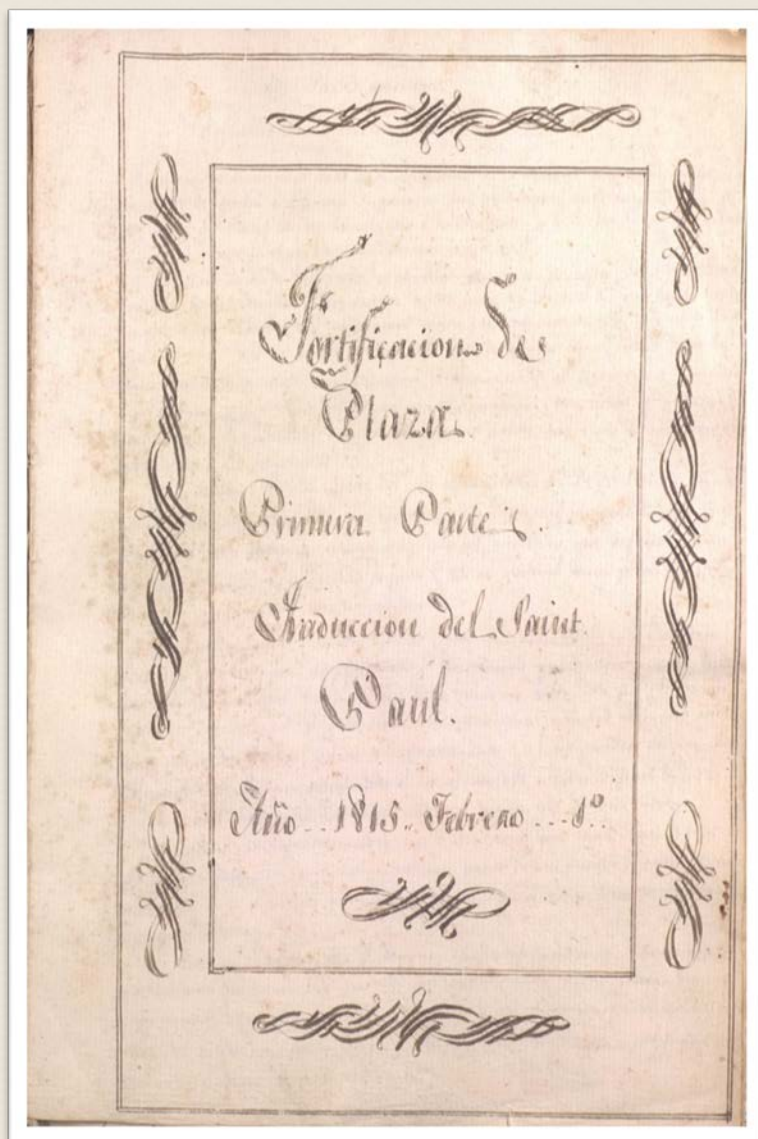 Fortificacion de
Plaza.
Primera Parte.
Traduccion del Saint
Paul.
Año .. 1815 .. Febrero ... 1º